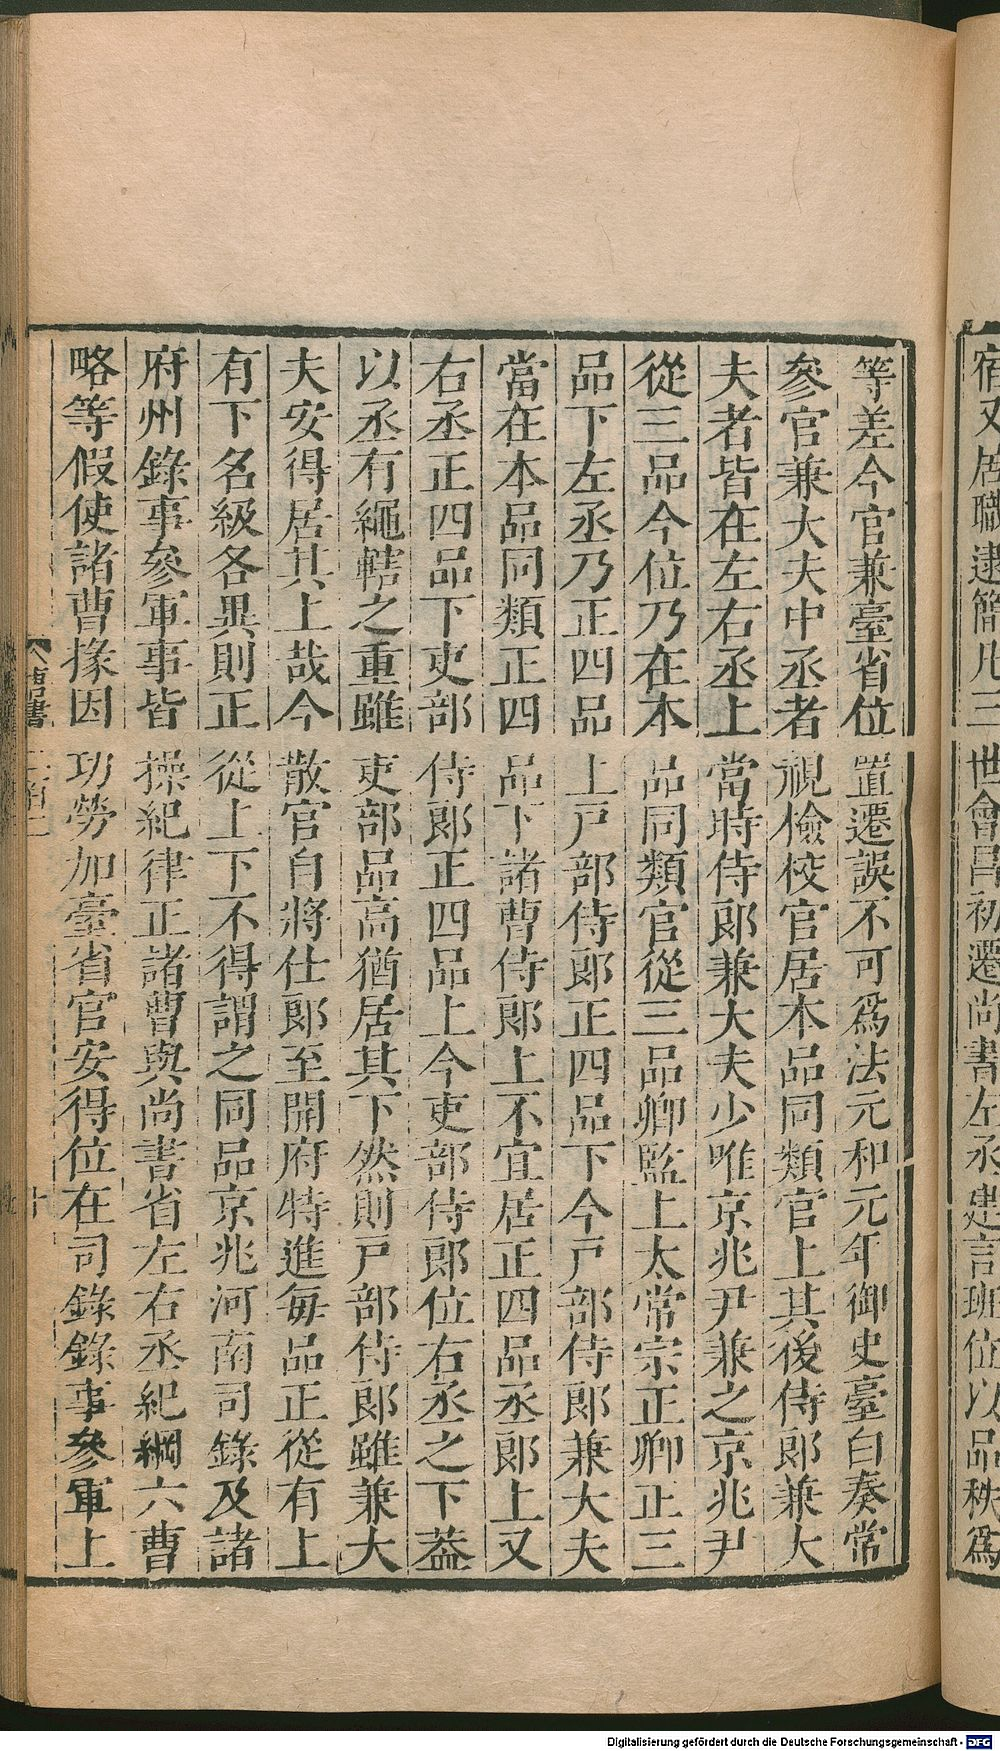 宿又居職逮簡凡三世會昌初遷尚書左丞建言班位以品秩爲
等差今官兼臺省位置遷誤不可爲法元和元年御史臺白奏常
參官兼大夫中丞者視檢校官居本品同類官上其後侍郎兼大
夫者皆在左右丞上當時侍郎兼大夫少唯京兆尹兼之京兆尹
從三品今位乃在本品同類官從三品卿監上太常宗正卿正三
品下左丞乃正四品上戶部侍郎正四品下今戶部侍郎兼大夫
當在本品同類正四品下諸曹侍郎上不宜居正四品丞郎上又
右丞正四品下吏部侍郎正四品上今吏部侍郎位右丞之下蓋
以丞有繩轄之重雖吏部品高猶居其下然則戶部侍郎雖兼大
夫安得居其上哉今散官自將仕郎至開府特進每品正從有上
有下名級各異則正從上下不得謂之同品京兆河南司錄及諸
府州錄事參軍事皆操紀律正諸曹與尚書省左右丞紀綱六曹
略等假使諸曹掾因功勞加臺省官安得位在司錄錄事參軍上
十
Digitalisierung gefördert durch die Deutsche Forschungsgemeinschaft - DFG